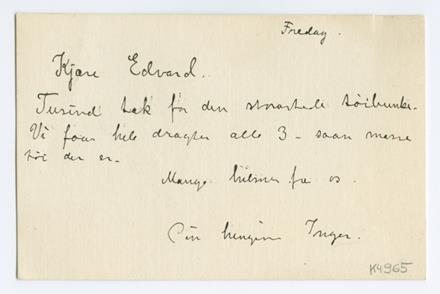 Fredag.
Kjære Edvard.
Tusind tak for den storartede tøibunke.
Vi faar hele dragter alle 3 - saan masse
tøi der er.
Mange hilsner fra os
Din hengivne Inger.
K4965